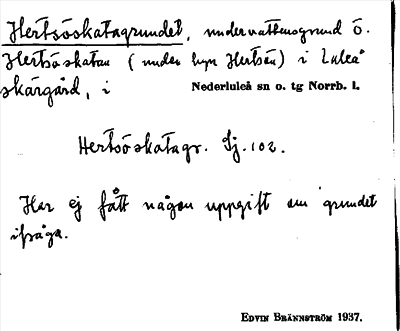 Hertsöskatagrundet, undervattensgrund ö.
Hertsöskatan (under hmn Hertsön) i Luleå
skärgård, i Nederluleå sn o. tg Norrb. l.
Hertsöskatagr. Sj. 102.
Har ej fått någon uppgift om grundet
ifråga.
EDVIN BRÄNNSTRÖM 1937.